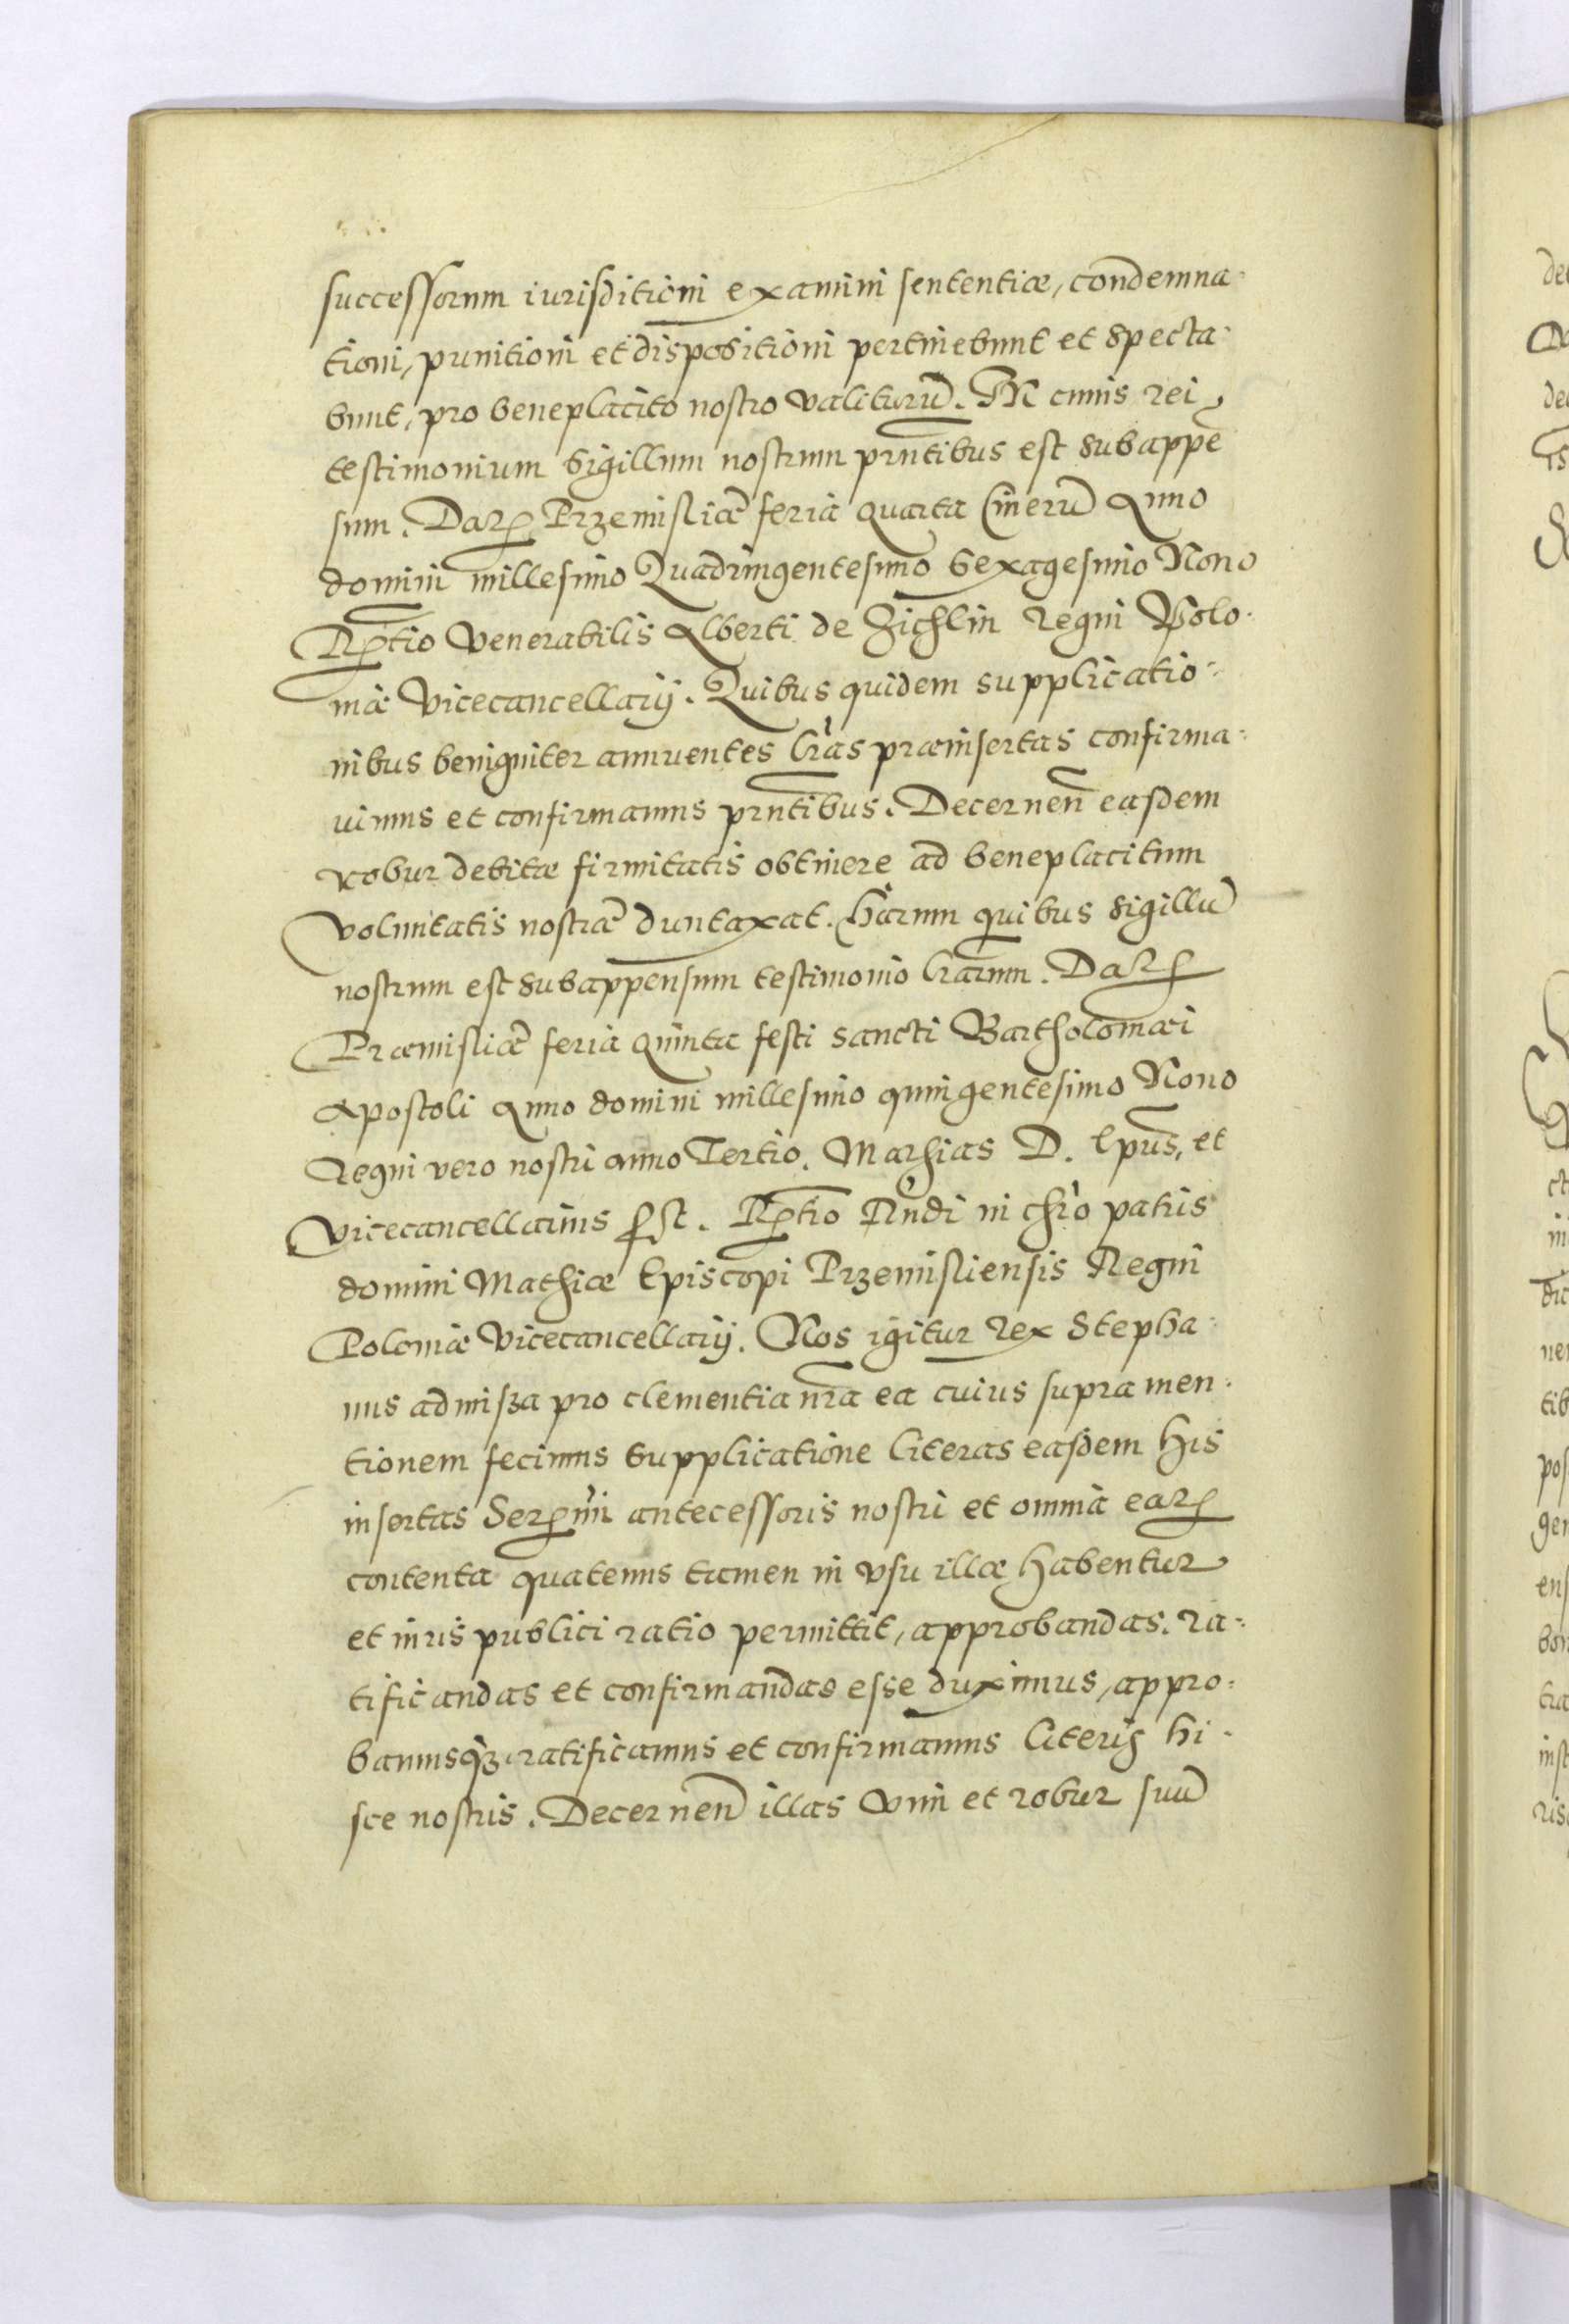 successorum iurisditioni examini sententiæ, condemna-
tioni, punitioni et dispositioni pertinebunt et specta-
bunt, pro beneplacito nostro valiturū. IN cuius rei
testimonium sigillum nostrum pr̄ntibus est subappē
sum. Datꝝ Przemisliæ feria quarta Cinerū Anno
domini millesimo Quadringentesimo Sexagesimo Nono
Rꝑtio venerabilis Alberti de Zichlin Regni Polo-
niæ Vicecancellarij. Quibus quidem supplicatio-
nibus benigniter annuentes lr̄as præinsertas confirma-
uimus et confirmamus prn̄tibus. Decernen̄ easdem
robur debitæ firmitatis obtinere ad beneplacitum
voluntatis nostræ duntaxat. Harum quibus sigillū
nostrum est subappensum testimonio lr̄arum. Datꝝ
Præmisliæ feria quinta festi sancti Bartholomæi
Apostoli Anno domini millesimo quingentesimo Nono
Regni vero nostri anno Tertio. Mathias D. Epūs, et
Vicecancellarius sst. Rꝑtio Rn̄di in chr̄o patris
domini Mathiæ Episcopi Przemisliensis Regni
Poloniæ Vicecancellarij. Nos igitur rex Stepha-
nus admissa pro clementia nr̄a ea cuius supra men-
tionem fecimus supplicatione literas easdem his
insertas Serꝑmi antecessoris nostri et omnia earꝝ
contenta quatenus tamen in vsu illæ habentur
et iuris publici ratio permittit, approbandas. ra-
tificandas et confirmandas esse duximus, appro-
bamusqꝫ ratificamus et confirmamus literis hi-
sce nostris. Decernen̄ illas vim et robur suū
de
de
is
ct
ni
dic
ne
tib
pos
ger
ens
bon
tra
inst
ris